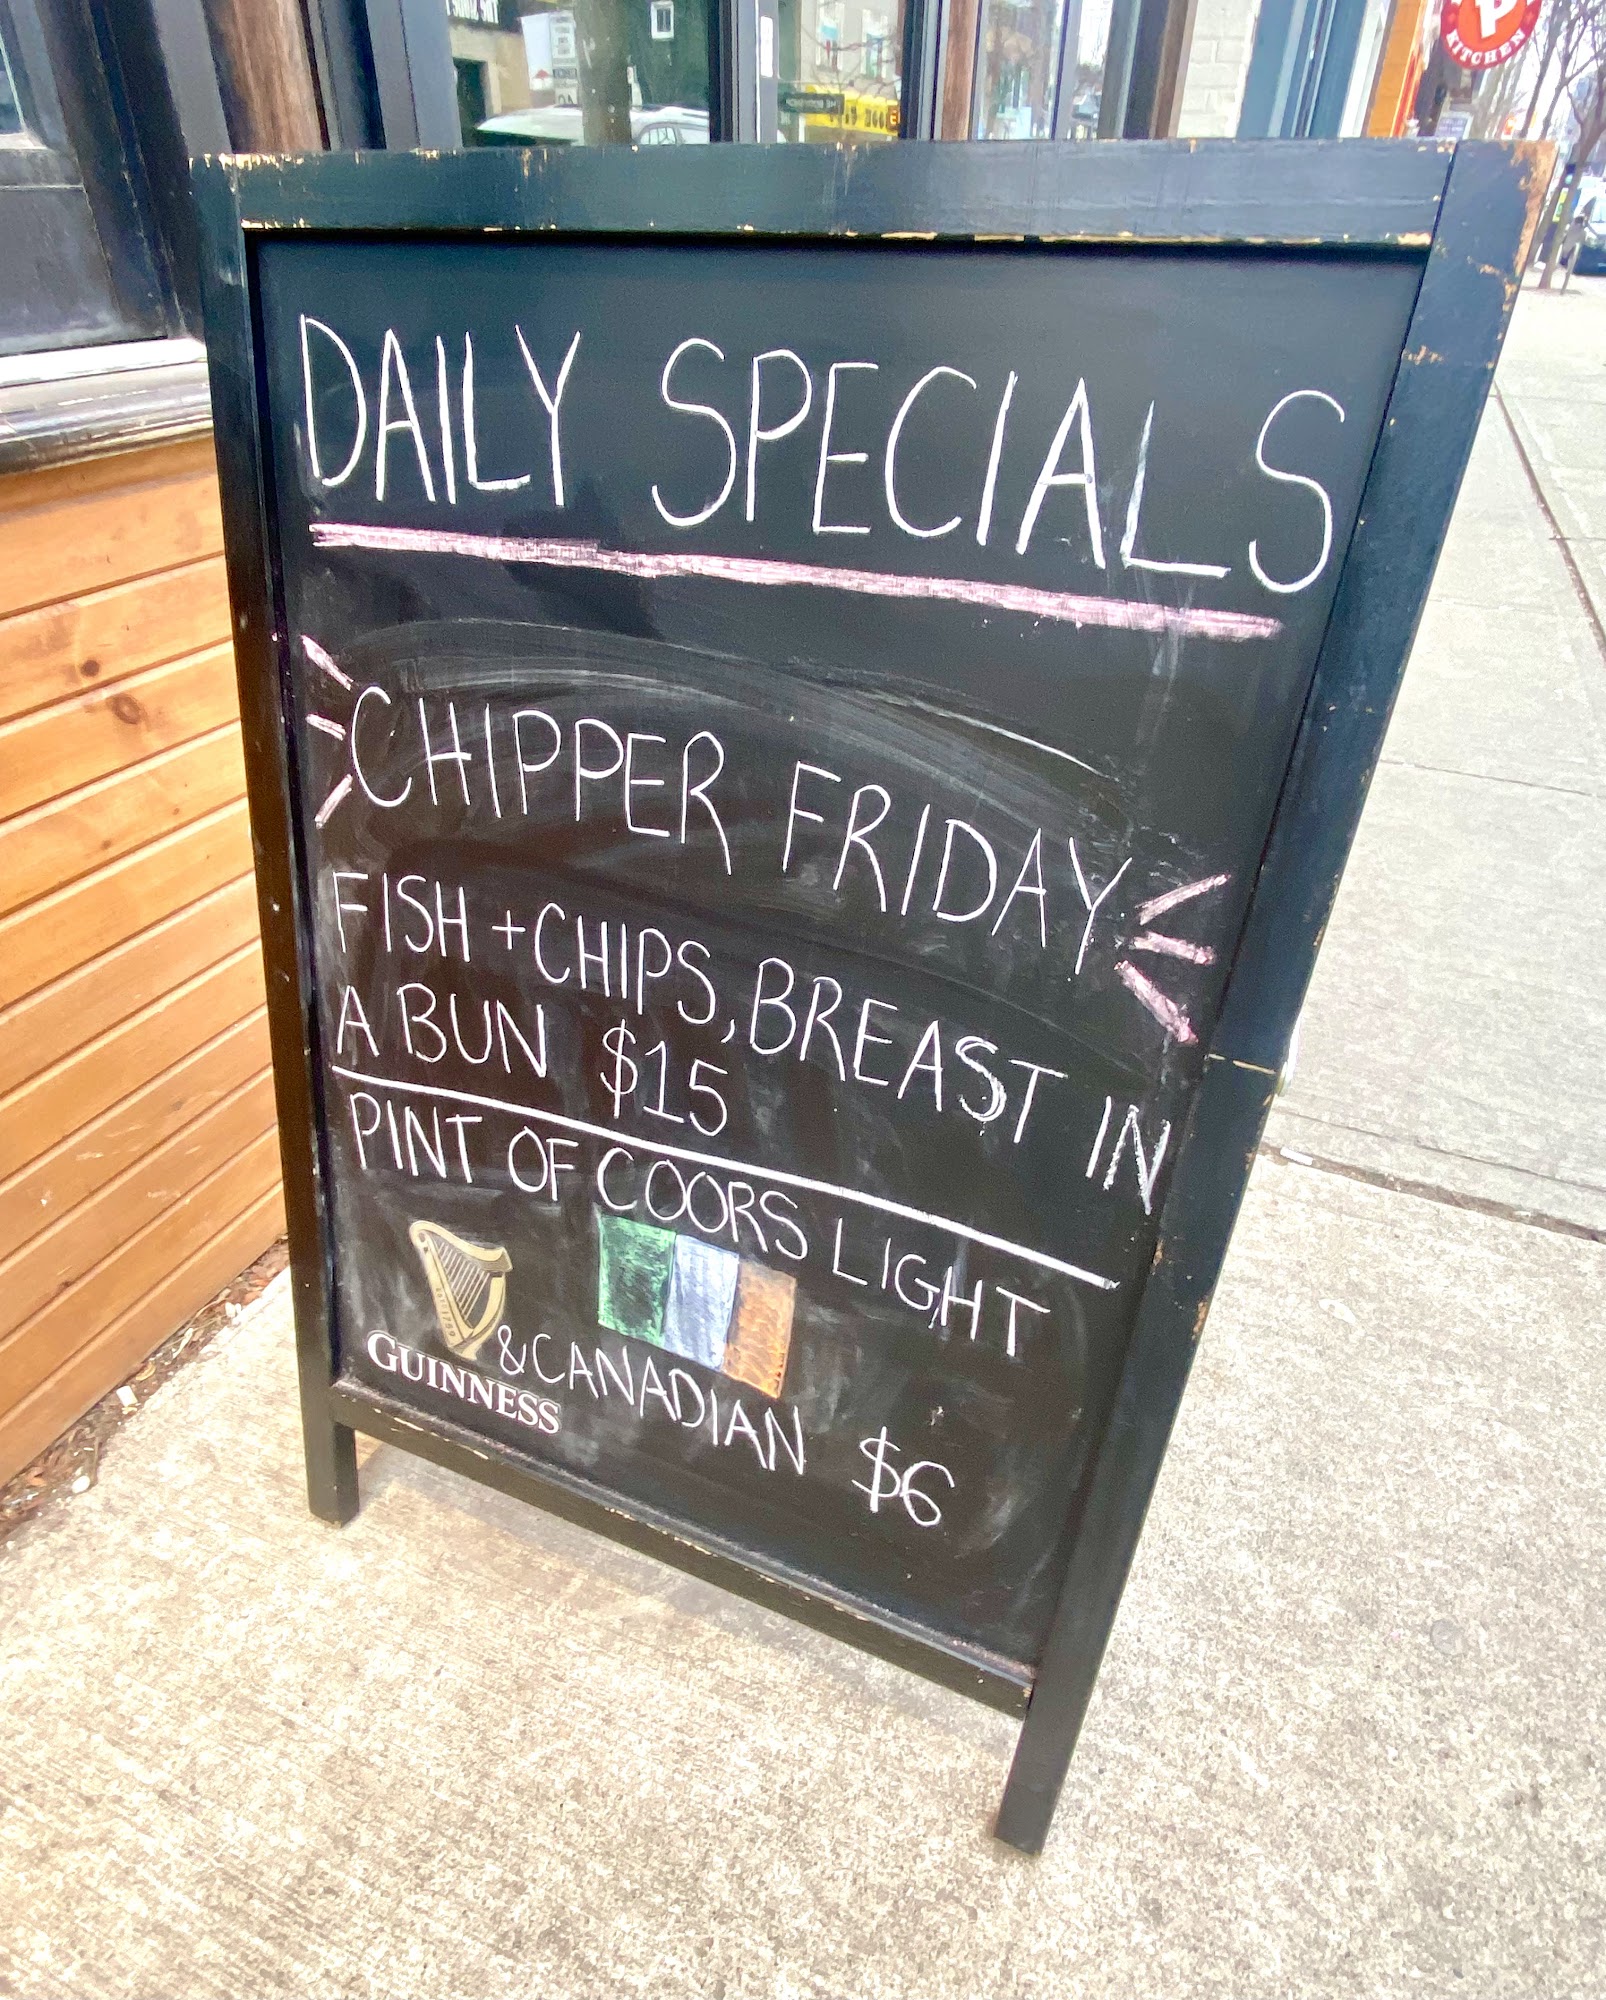 DAILY SPECIALS
CHIPPER FRIDAY
FISH + CHIPS, BREAST IN
A BUN $15
PINT OF COORS LIGHT
& CANADIAN $6
GUINNESS
P
KITCHEN